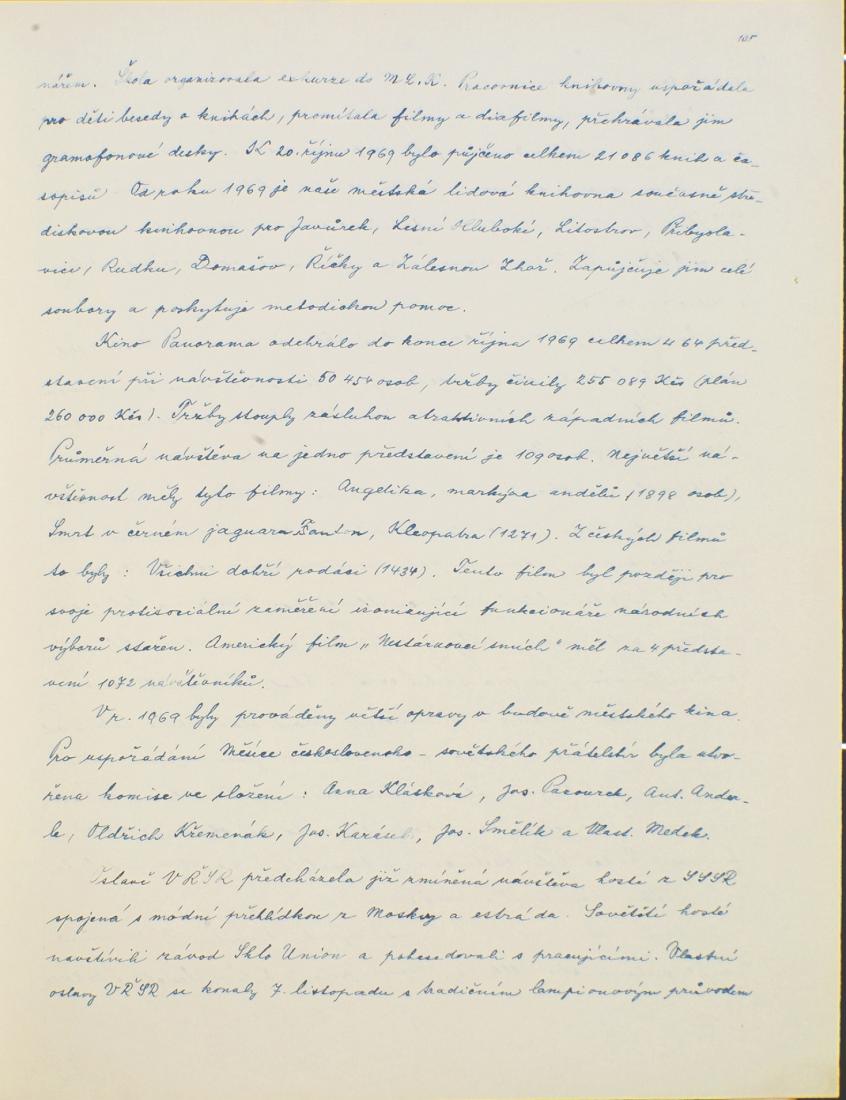 105
nářem. Škola organizovala exkurze do M L. K. Pracovnice knihovny uspořádala
pro děti besedy o knihách, promítala filmy a diafilmy, přehrávala jim
gramofonové desky. K 20. říjnu 1969 bylo půjčeno celkem 21 086 knih a ča-
sopisů Od roku 1969 je naše městská lidová knihovna současně stře-
diskovou knihovnou pro Javůrek, Lesní Hluboké, Litostrov, Přibysla-
vice, Rudku, Domašov, Říčky a Zálesnou Zhoř. Zapůjčuje jim celé
soubory a poskytuje metodickou pomoc.
Kino Panorama odehrálo do konce října 1969 celkem 464 před-
stavení při návštěvnosti 50 454 osob, tržby činily 255 089 Kčs (plán
260 000 Kčs). Tržby stouply zásluhou atraktivních západních filmů.
Průměrná návštěva na jedno představení je 109 osob. Největší ná-
vštěvnost měly tyto filmy: Angelika, markýza andělů (1898 osob),
Smrt v černém jaguaru, Kleopatra (1271). Z českých filmů
to byly: Všichni dobří rodáci (1434). Tento film byl později pro
svoje protisociální zaměření ironizující funkcionáře národních
výborů stažen. Americký film „Nestárnoucí smích" měl za 4 předsta-
vení 1072 návštěvníků.
V r. 1969 byly prováděny větší opravy v budově městského kina.
Pro uspořádání Měsíce československo-sovětského přátelství byla utvo-
řena komise ve složení: Anna Klásková, Jos. Pacourek, Ant. Ander-
le, Oldřich Křemenák, Jos. Karásek, Jos. Smělík a Vlast. Medek.
Oslavě VŘSR předcházela již zmíněná návštěva hostí z SSSR
spojená s módní přehlídkou z Moskvy a estráda. Sovětští hosté
navštívili závod Sklo Union a pobesedovali s pracujícími. Vlastní
oslavy VŘSR se konaly 7. listopadu s tradičním lampionovým průvodem